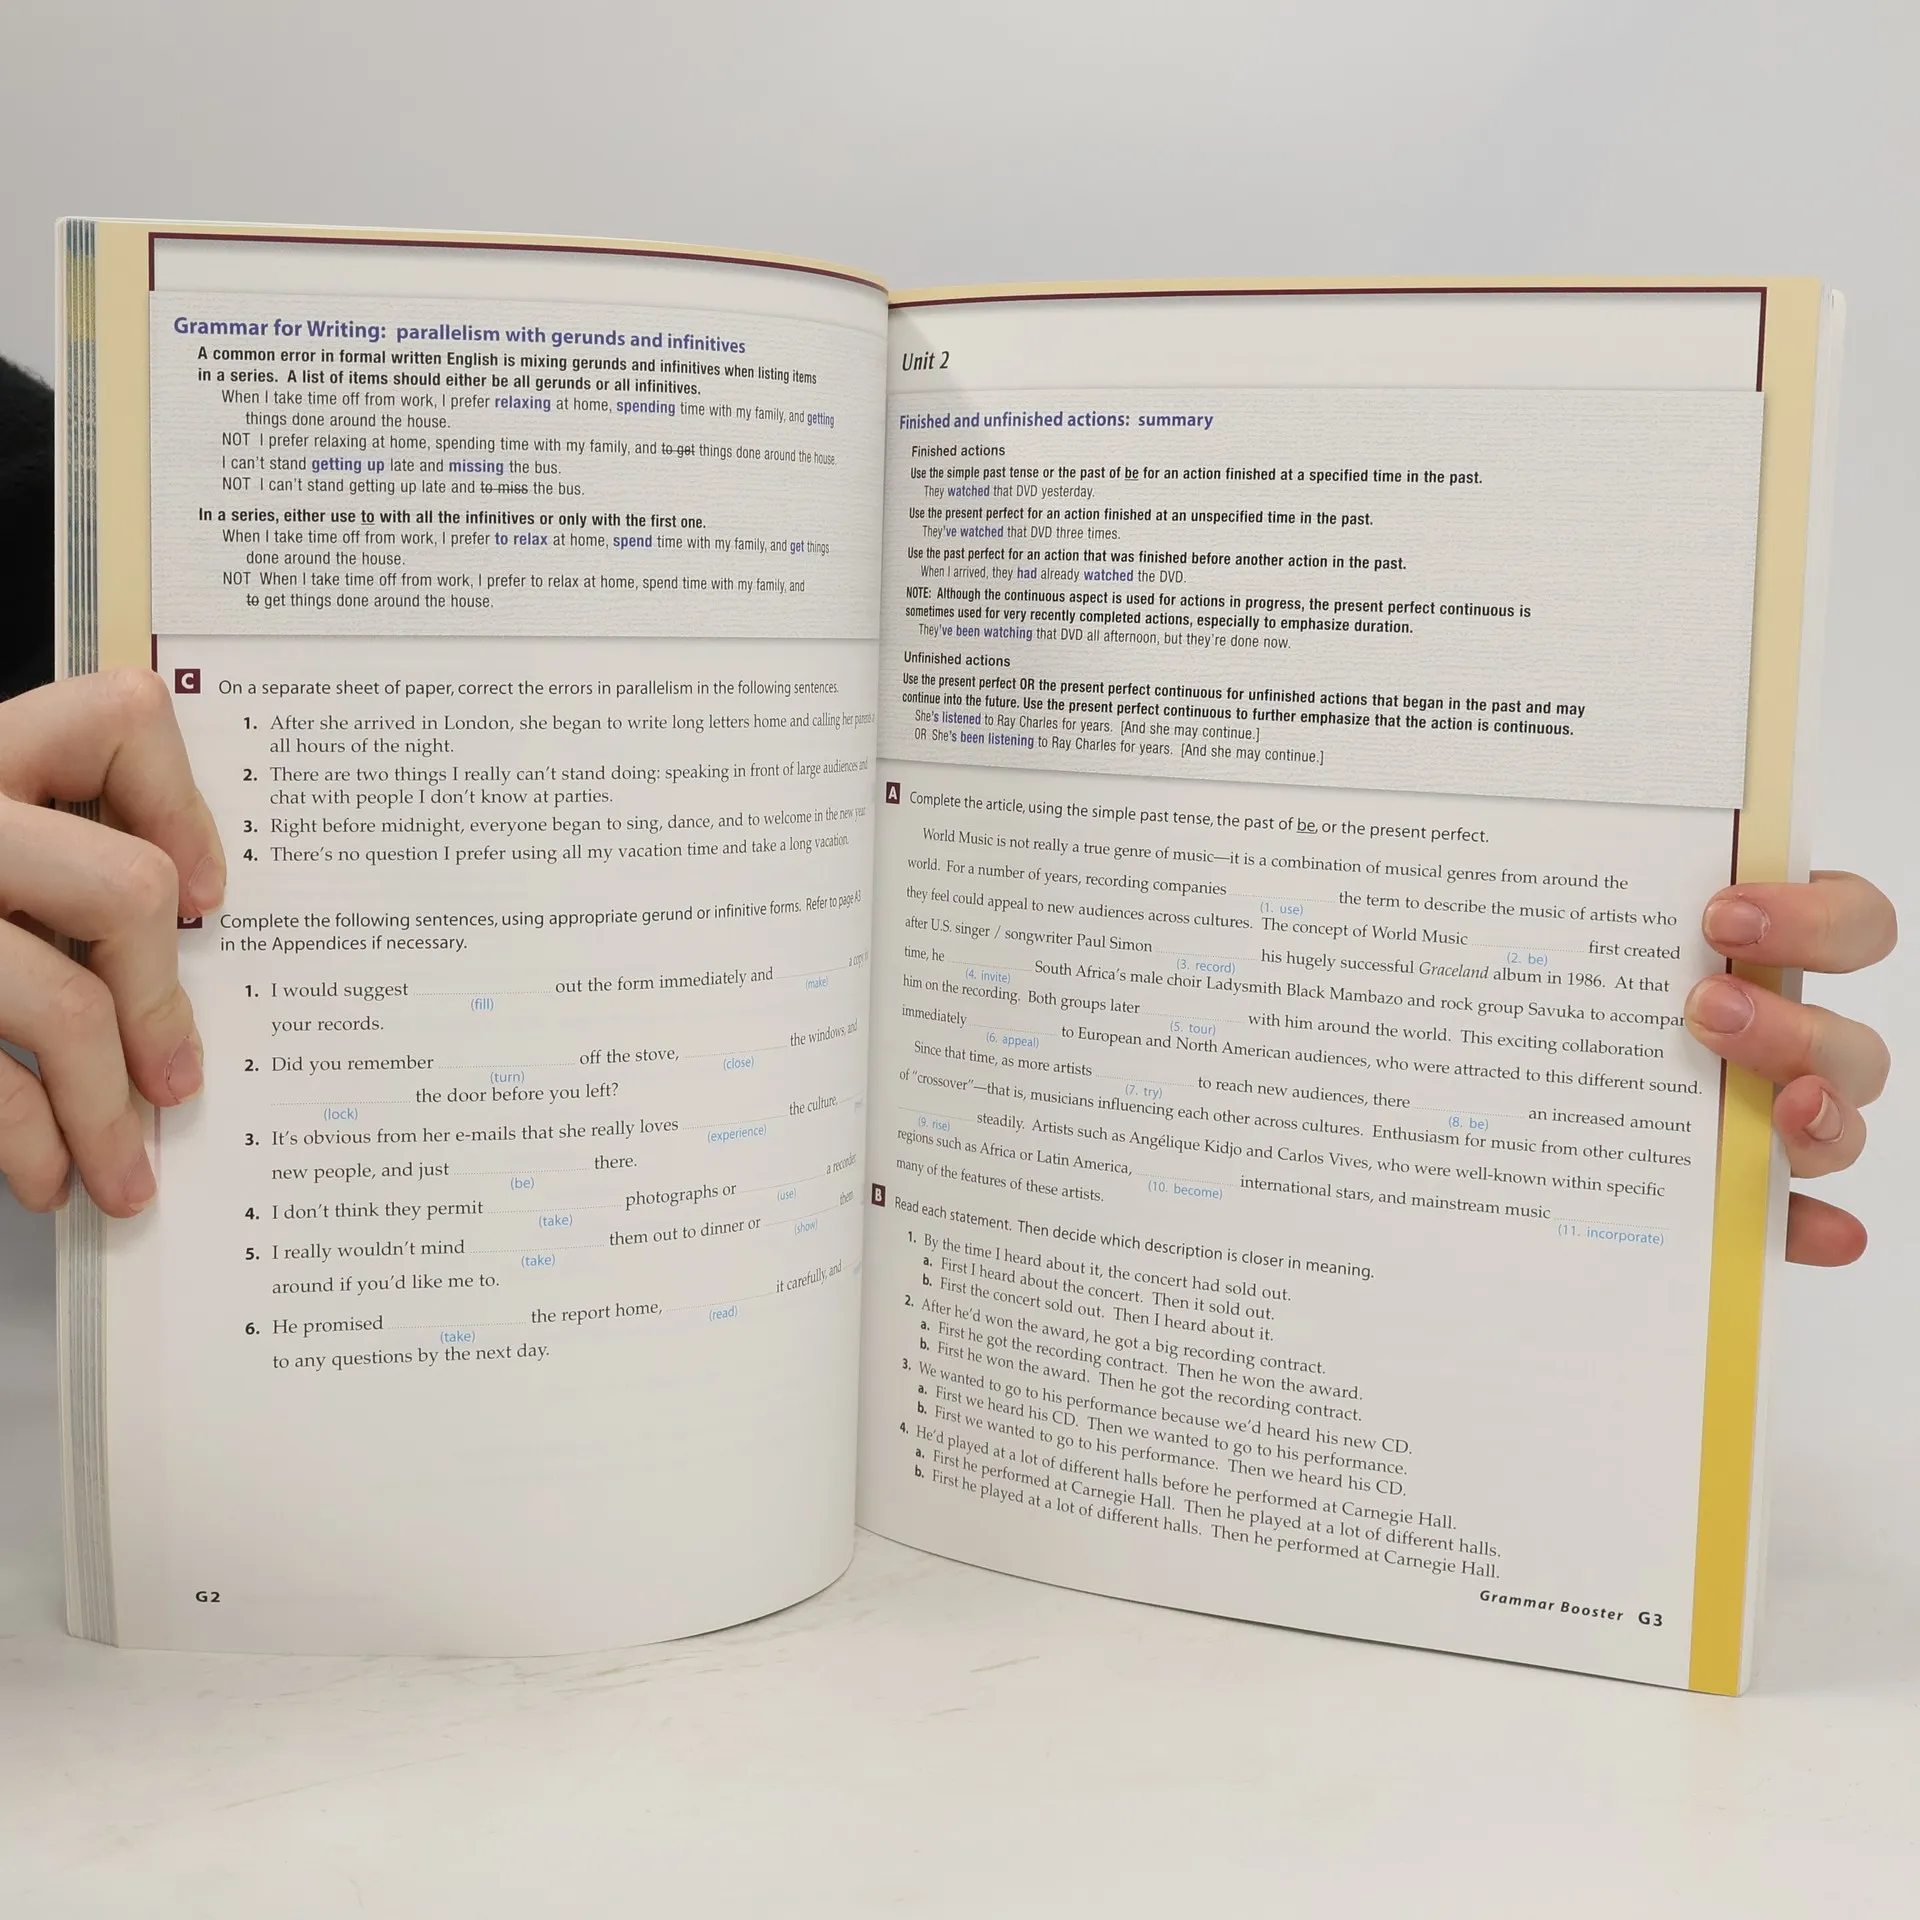 Grammar for Writing: parallelism with gerunds and infinitives
A common error in formal written English is mixing gerunds and infinitives when listing items
in a series. A list of items should either be all gerunds or all infinitives.
When I take time off from work, I prefer relaxing at home, spending time with my family, and getting
things done around the house.
NOT I prefer relaxing at home, spending time with my family, and to get things done around the house.
I can't stand getting up late and missing the bus.
NOT I can't stand getting up late and to miss the bus.
In a series, either use to with all the infinitives or only with the first one.
When I take time off from work, I prefer to relax at home, spend time with my family, and get things
done around the house.
NOT When I take time off from work, I prefer to relax at home, spend time with my family, and
to get things done around the house.
C On a separate sheet of paper, correct the errors in parallelism in the following sentences.
1. After she arrived in London, she began to write long letters home and calling her parents
all hours of the night.
2. There are two things I really can't stand doing: speaking in front of large audiences and
chat with people I don't know at parties.
3. Right before midnight, everyone began to sing, dance, and to welcome in the new year.
4. There's no question I prefer using all my vacation time and take a long vacation.
Complete the following sentences, using appropriate gerund or infinitive forms. Refer to page A3
in the Appendices if necessary.
1. I would suggest out the form immediately and a copy
(fill) (make)
your records.
2. Did you remember off the stove, the windows, and
(turn) (close)
the door before you left?
(lock)
3. It's obvious from her e-mails that she really loves the culture,
(experience)
new people, and just there.
(be)
4. I don't think they permit photographs or a recorder.
(take) (use)
5. I really wouldn't mind them out to dinner or them
(take) (show)
around if you'd like me to.
6. He promised the report home, it carefully, and
(take) (read)
to any questions by the next day.
G2
Unit 2
Finished and unfinished actions: summary
Finished actions
Use the simple past tense or the past of be for an action finished at a specified time in the past.
They watched that DVD yesterday.
Use the present perfect for an action finished at an unspecified time in the past.
They've watched that DVD three times.
Use the past perfect for an action that was finished before another action in the past.
When I arrived, they had already watched the DVD.
NOTE: Although the continuous aspect is used for actions in progress, the present perfect continuous is
sometimes used for very recently completed actions, especially to emphasize duration.
They've been watching that DVD all afternoon, but they're done now.
Unfinished actions
Use the present perfect OR the present perfect continuous for unfinished actions that began in the past and may
continue into the future. Use the present perfect continuous to further emphasize that the action is continuous.
She's listened to Ray Charles for years. [And she may continue.]
OR She's been listening to Ray Charles for years. [And she may continue.]
A Complete the article, using the simple past tense, the past of be, or the present perfect.
World Music is not really a true genre of music—it is a combination of musical genres from around the
world. For a number of years, recording companies the term to describe the music of artists who
(1. use)
they feel could appeal to new audiences across cultures. The concept of World Music first created
(2. be)
after U.S. singer / songwriter Paul Simon his hugely successful Graceland album in 1986. At that
(3. record)
time, he South Africa's male choir Ladysmith Black Mambazo and rock group Savuka to accompan
(4. invite)
him on the recording. Both groups later with him around the world. This exciting collaboration
(5. tour)
immediately to European and North American audiences, who were attracted to this different sound.
(6. appeal)
Since that time, as more artists to reach new audiences, there an increased amount
(7. try) (8. be)
of "crossover"—that is, musicians influencing each other across cultures. Enthusiasm for music from other cultures
steadily. Artists such as Angélique Kidjo and Carlos Vives, who were well-known within specific
(9. rise)
regions such as Africa or Latin America, international stars, and mainstream music
(10. become) (11. incorporate)
many of the features of these artists.
B Read each statement. Then decide which description is closer in meaning.
1. By the time I heard about it, the concert had sold out.
a. First I heard about the concert. Then it sold out.
b. First the concert sold out. Then I heard about it.
2. After he'd won the award, he got a big recording contract.
a. First he got the recording contract. Then he won the award.
b. First he won the award. Then he got the recording contract.
3. We wanted to go to his performance because we'd heard his new CD.
a. First we heard his CD. Then we wanted to go to his performance.
b. First we wanted to go to his performance. Then we heard his CD.
4. He'd played at a lot of different halls before he performed at Carnegie Hall.
a. First he performed at Carnegie Hall. Then he played at a lot of different halls.
b. First he played at a lot of different halls. Then he performed at Carnegie Hall.
Grammar Booster G3